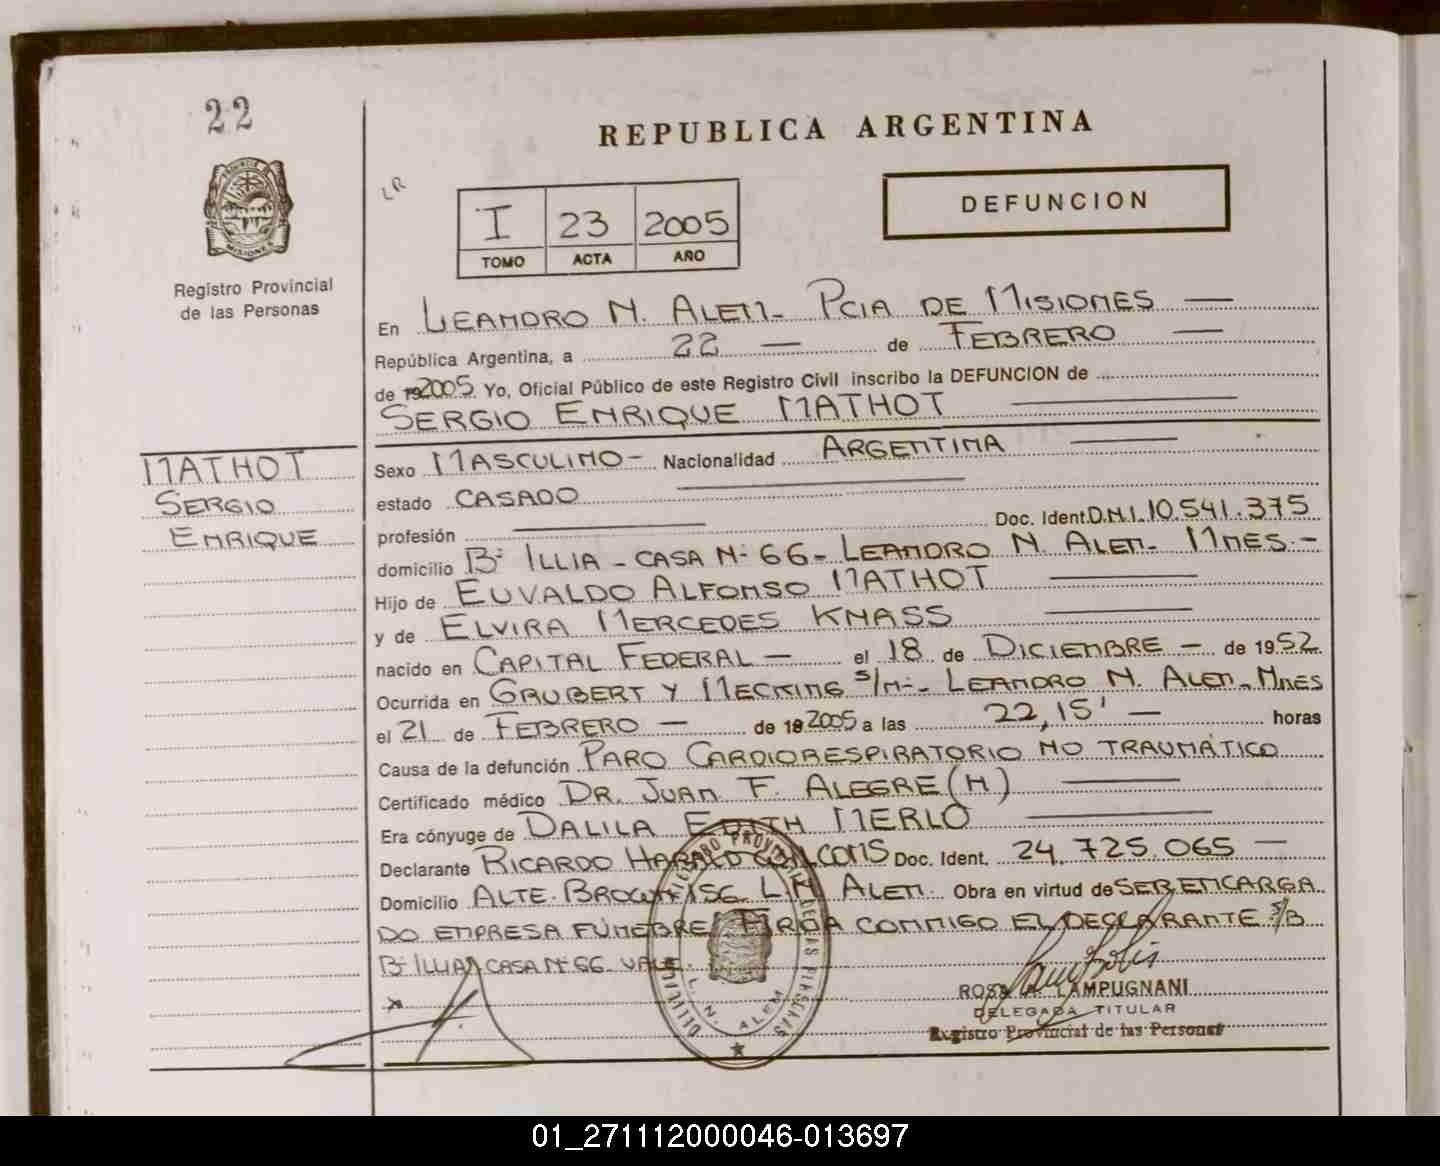 22
REPUBLICA ARGENTINA
LR
I 23 2005
TOMO ACTA AÑO
DEFUNCION
PROVINCIA DE MISIONES
Registro Provincial
de las Personas
En LEANDRO N. ALEM - PCIA DE MISIONES —
República Argentina, a 22 — de FEBRERO —
de 192005 Yo, Oficial Público de este Registro Civil inscribo la DEFUNCION de
SERGIO ENRIQUE MATHOT
MATHOT
SERGIO
ENRIQUE
Sexo MASCULINO - Nacionalidad ARGENTINA
estado CASADO
profesión — Doc. Ident. D.N.I. 10.541.375
domicilio Bº ILLIA - CASA Nº 66 - LEANDRO N. ALEM - MNES -
Hijo de EUVALDO ALFONSO MATHOT
y de ELVIRA MERCEDES KNASS
nacido en CAPITAL FEDERAL - el 18 de DICIEMBRE - de 1952.
Ocurrida en GRUBERT Y MECKING s/nº - LEANDRO N. ALEM - MNES
el 21 de FEBRERO - de 192005 a las 22,15' — horas
Causa de la defunción PARO CARDIORESPIRATORIO NO TRAUMÁTICO
Certificado médico DR. JUAN F. ALEGRE (H)
Era cónyuge de DALILA EDITH MERLO
Declarante RICARDO HARALD Doc. Ident. 24.725.065 —
Domicilio ALTE. BROWN L.N. ALEM. Obra en virtud de SER ENCARGA
DO EMPRESA FÚNEBRE FIRMA CONMIGO EL DECLARANTE S/B
Bº ILLIA CASA Nº 66. VALE.
REGISTRO PROVINCIAL DE LAS PERSONAS
L. N. ALEM
ROSA LAMPUGNANI
DELEGADA TITULAR
Registro Provincial de las Personas
01_271112000046-013697